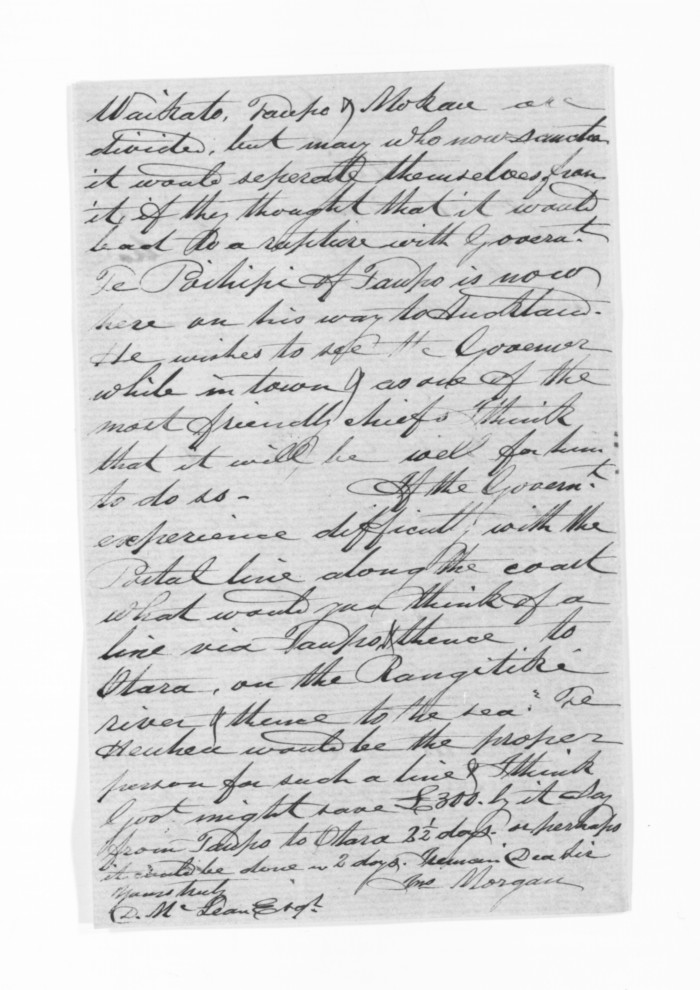 Waikato, Taupo & Mokau are
divided, but many who now sanction
it would seperate themselves from
it, if they thought that it would
lead to a rupture with Governt.
Te Poihipi of Taupo is now
here on his way to Auckland.
He wishes to see the Governor
while in town & as one of the
most friendly chiefs I think
that it will be well for him
to do so - If the Governt.
experience difficulty with the
Postal line along the coast
what would you think of a
line via Taupo, & thence to
Otara, on the Rangitiki
river & thence to the sea." Te
Heuheu would be the proper
person for such a line & I think
Govt might save £300. by it say
from Taupo to Otara 2½ days. or perhaps
it could be done in 2 days. I remain Dear Sir
Yours truly
Jno Morgan
D. Mc Lean Esqr.